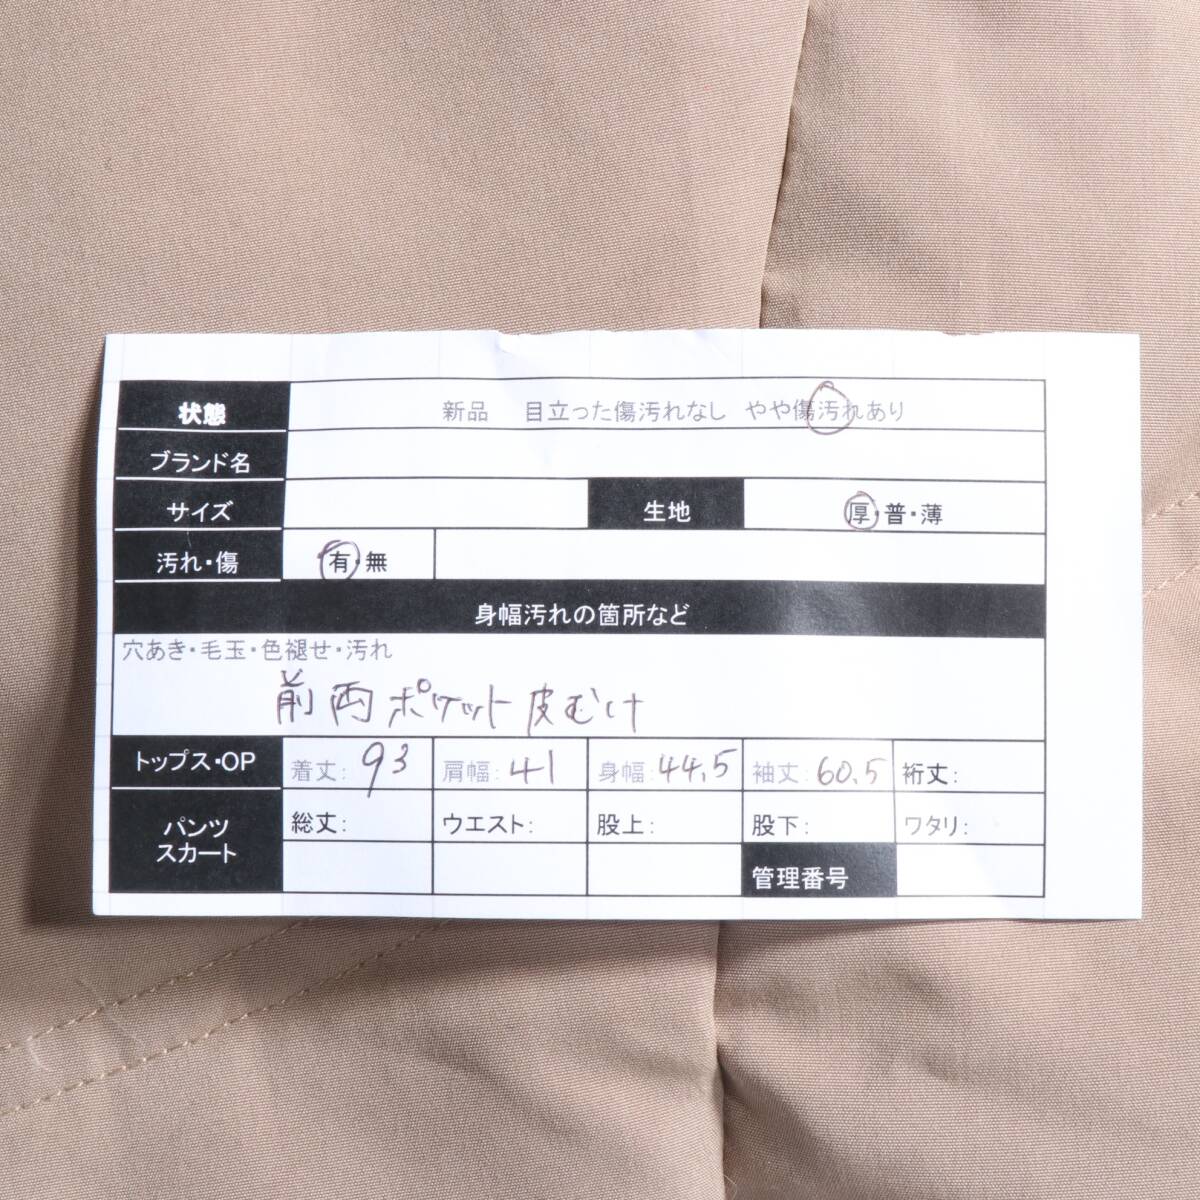 状態 新品 目立った傷汚れなし やや傷汚れあり
ブランド名
サイズ 生地 厚・普・薄
汚れ・傷 有・無
身幅汚れの箇所など
穴あき・毛玉・色褪せ・汚れ
前両ポケット皮むけ
トップス・OP 着丈: 93 肩幅: 41 身幅: 44.5 袖丈: 60.5 裄丈:
パンツ スカート 総丈: ウエスト: 股上: 股下: ワタリ:
管理番号